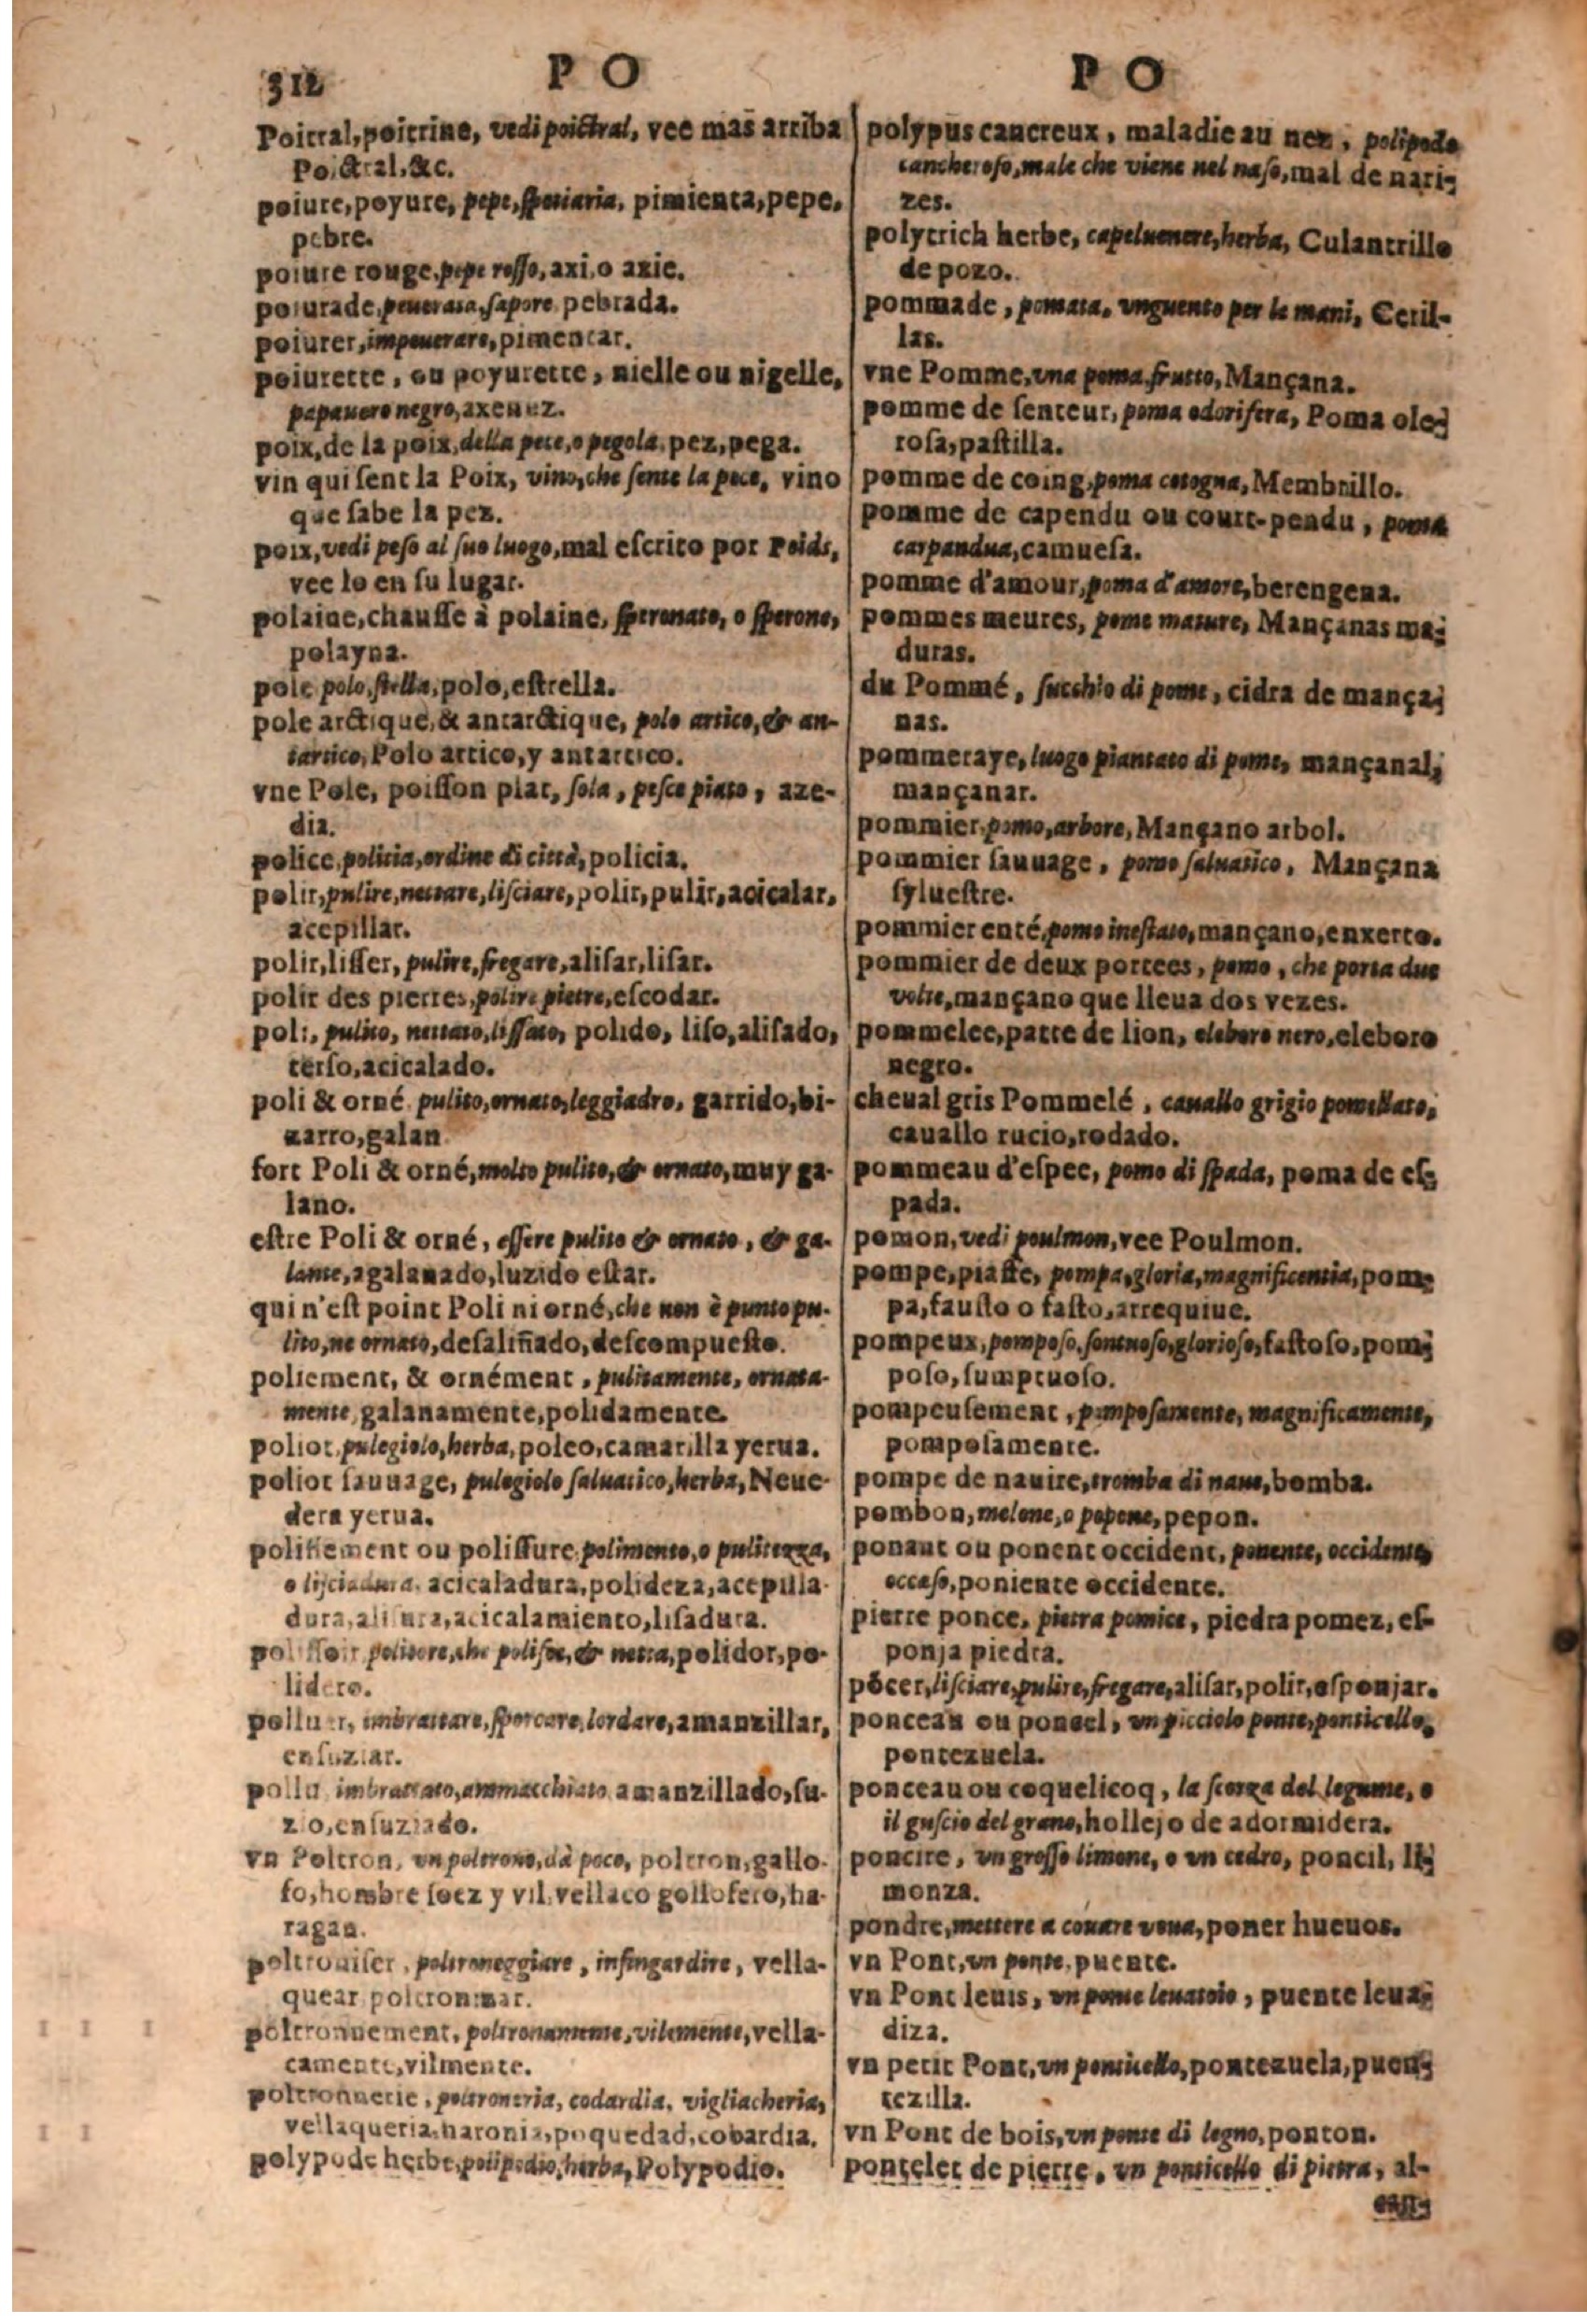 312
P O
Poitral, poitrine, vedi poictral, vee mas arriba
Poictral, &c.
poiure, poyure, pepe, spetiaria, pimienta, pepe,
pebre.
poiure rouge, pepe rosso, axi, o axie.
poiurade, peuerata, sapore, pebrada.
poiurer, impeuerare, pimentar.
poiurette, ou poyurette, nielle ou nigelle,
papauero negro, axenuz.
poix, de la poix, della pece, o pegola, pez, pega.
vin qui sent la Poix, vino, che sente la pece, vino
que sabe la pez.
poix, vedi peso al suo luogo, mal escrito por Poids,
vee lo en su lugar.
polaine, chausse à polaine, speronato, o sperone,
polayna.
pole polo, stella, polo, estrella.
pole arctique, & antarctique, polo artico, & an-
tartico, Polo artico, y antartico.
vne Pole, poisson plat, sola, pesce piato, aze-
dia.
police, politia, ordine di città, policia.
polir, pulire, nettare, lisciare, polir, pulir, acicalar,
acepillar.
polir, lisser, pulire, fregare, alisar, lisar.
polir des pierres, polire pietre, escodar.
poli, pulito, nettato, lissato, polido, liso, alisado,
terso, acicalado.
poli & orné, pulito, ornato, leggiadro, garrido, bi-
zarro, galan
fort Poli & orné, molto pulito, & ornato, muy ga-
lano.
estre Poli & orné, essere pulito & ornato, & ga-
lante, agalanado, luzido estar.
qui n'est point Poli ni orné, che non è punto pu-
lito, ne ornato, desaliñado, descompuesto.
poliement, & ornément, pulitamente, ornata-
mente, galanamente, polidamente.
poliot, pulegiolo, herba, poleo, camarilla yerua.
poliot sauuage, pulegiolo saluatico, herba, Neue-
dera yerua.
polissement ou polissure, polimento, o pulitezza,
o lisciadura, acicaladura, polideza, acepilla-
dura, alisura, acicalamiento, lisadura.
polissoir, politore, che polisce, & netta, polidor, po-
lidero.
polluer, imbrattare, sporcare, lordare, amanzillar,
ensuziar.
pollu, imbrattato, ammacchiato, amanzillado, su-
zio, ensuziado.
vn Poltron, vn poltrone, dà poco, poltron, gallo-
fo, hombre soez y vil, vellaco gollofero, ha-
ragan.
poltroniser, poltroneggiare, infingardire, vella-
quear, poltronizar.
poltronnement, poltronamente, vilemente, vella-
camente, vilmente.
poltronnerie, poltroneria, codardia, vigliacheria,
vellaqueria, haronia, poquedad, cobardia.
polypode herbe, polipodio, herba, Polypodio.
P O
polypus cancreux, maladie au nez, polipodo
cancheroso, male che viene nel naso, mal de nari-
zes.
polytrich herbe, capeluenere, herba, Culantrillo
de pozo.
pommade, pomata, vnguento per le mani, Ceril-
las.
vne Pomme, vna poma, frutto, Mançana.
pomme de senteur, poma odorifera, Poma olo-
rosa, pastilla.
pomme de coing, poma cotogna, Membrillo.
pomme de capendu ou court-pendu, poma
carpandua, camuesa.
pomme d'amour, poma d'amore, berengena.
pommes meures, pome mature, Mançanas ma-
duras.
du Pommé, succhio di pome, cidra de mança-
nas.
pommeraye, luogo piantato di pome, mançanal,
mançanar.
pommier, pomo, arbore, Mançano arbol.
pommier sauuage, pomo saluatico, Mançana
syluestre.
pommier enté, pomo inestato, mançano, enxerto.
pommier de deux portees, pomo, che porta due
volte, mançano que lleua dos vezes.
pommelee, patte de lion, eleboro nero, eleboro
negro.
cheual gris Pommelé, cauallo grigio pomellato,
cauallo rucio, rodado.
pommeau d'espee, pomo di spada, poma de es-
pada.
pomon, vedi poulmon, vee Poulmon.
pompe, piaffe, pompa, gloria, magnificentia, pom-
pa, fausto o fasto, arrequiue.
pompeux, pomposo, sontuoso, glorioso, fastoso, pom-
poso, sumptuoso.
pompeusement, pomposamente, magnificamente,
pomposamente.
pompe de nauire, tromba di naue, bomba.
pombon, melone, o popone, pepon.
ponant ou ponent occident, ponente, occidente,
occaso, poniente occidente.
pierre ponce, pietra pomice, piedra pomez, es-
ponja piedra.
põcer, lisciare, pulire, fregare, alisar, polir, esponjar.
ponceau ou poncel, vn picciolo ponte, ponticello,
pontezuela.
ponceau ou coquelicoq, la scorza del legume, o
il guscio del grano, hollejo de adormidera.
poncire, vn grosso limone, o vn cedro, poncil, li-
monza.
pondre, mettere a couare voua, poner hueuos.
vn Pont, vn ponte, puente.
vn Pont leuis, vn ponte leuatoio, puente leua-
diza.
vn petit Pont, vn ponticello, pontezuela, puen-
tezilla.
vn Pont de bois, vn ponte di legno, ponton.
pontelet de pierre, vn ponticello di pietra, al-